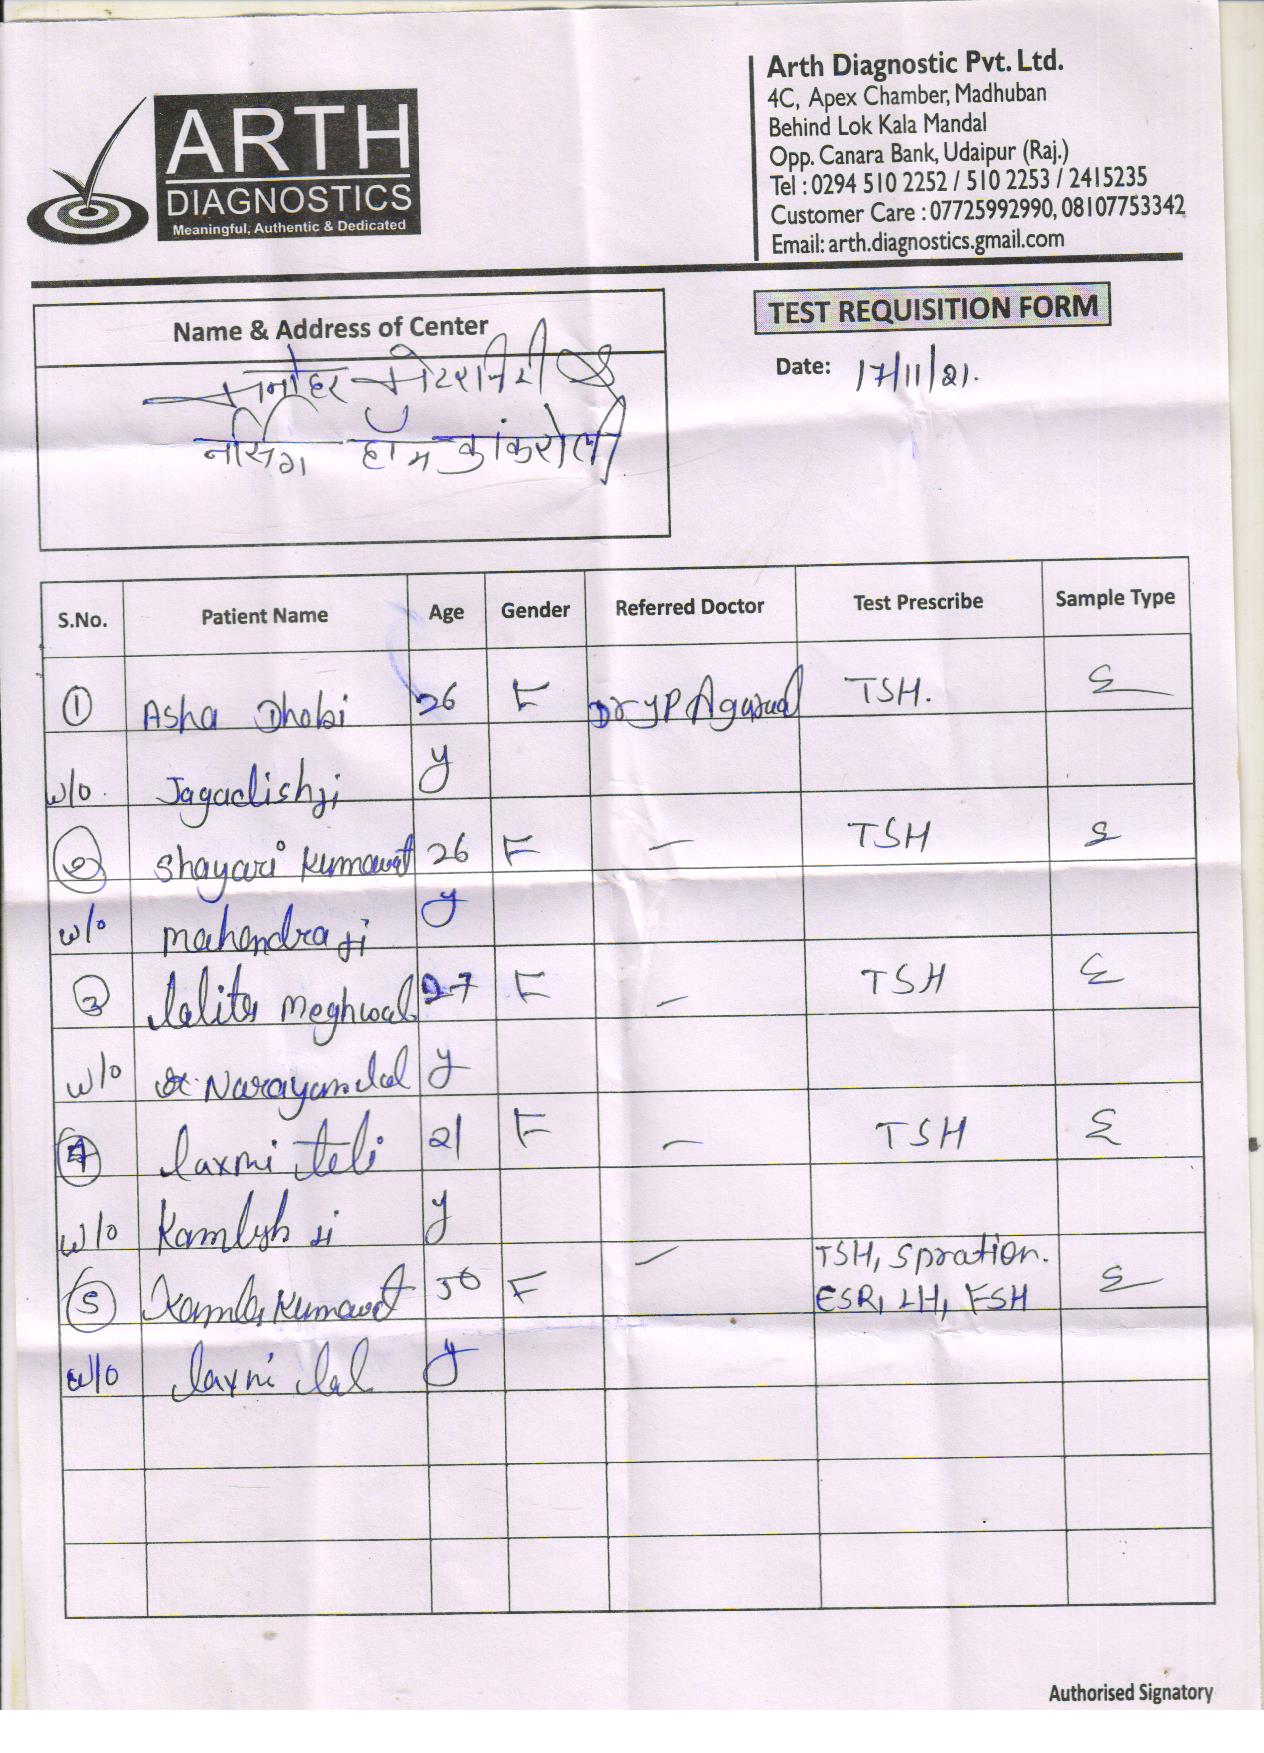 ARTH
DIAGNOSTICS
Meaningful, Authentic & Dedicated
Arth Diagnostic Pvt. Ltd.
4C, Apex Chamber, Madhuban
Behind Lok Kala Mandal
Opp. Canara Bank, Udaipur (Raj.)
Tel : 0294 510 2252 / 510 2253 / 2415235
Customer Care : 07725992990, 08107753342
Email: arth.diagnostics.gmail.com
Name & Address of Center
मनोहर मेटरनिटी &
नर्सिंग होम कांकरोली
TEST REQUISITION FORM
Date: 17/11/21.
S.No. Patient Name Age Gender Referred Doctor Test Prescribe Sample Type
1 Asha Dhobi 26 F Dr YP Agarwal TSH. S
w/o. Jagadishji y
2 Shayari Kumawat 26 F — TSH S
w/o mahendra ji y
3 lalita meghwal 27 F — TSH S
w/o Narayan lal y
4 laxmi teli 21 F — TSH S
w/o Kamlesh ji y
5 Kamla Kumawat 50 F — TSH, S pration. S
ESR, LH, FSH
w/o laxmi lal y
Authorised Signatory